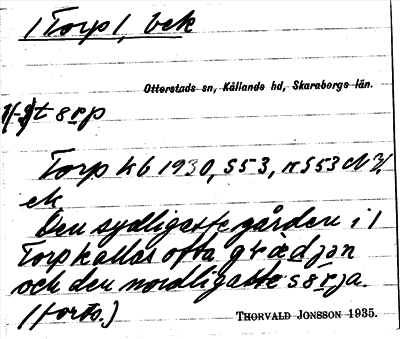 /Torp/, bek
Otterstads sn, Kållands hd, Skaraborgs län.
Torp kb 1930, S53,
ek
Den sydligaste gården i /
Torp kallas ofta
och den nordligaste
(forts.)
THORVALD JONSSON 1935.